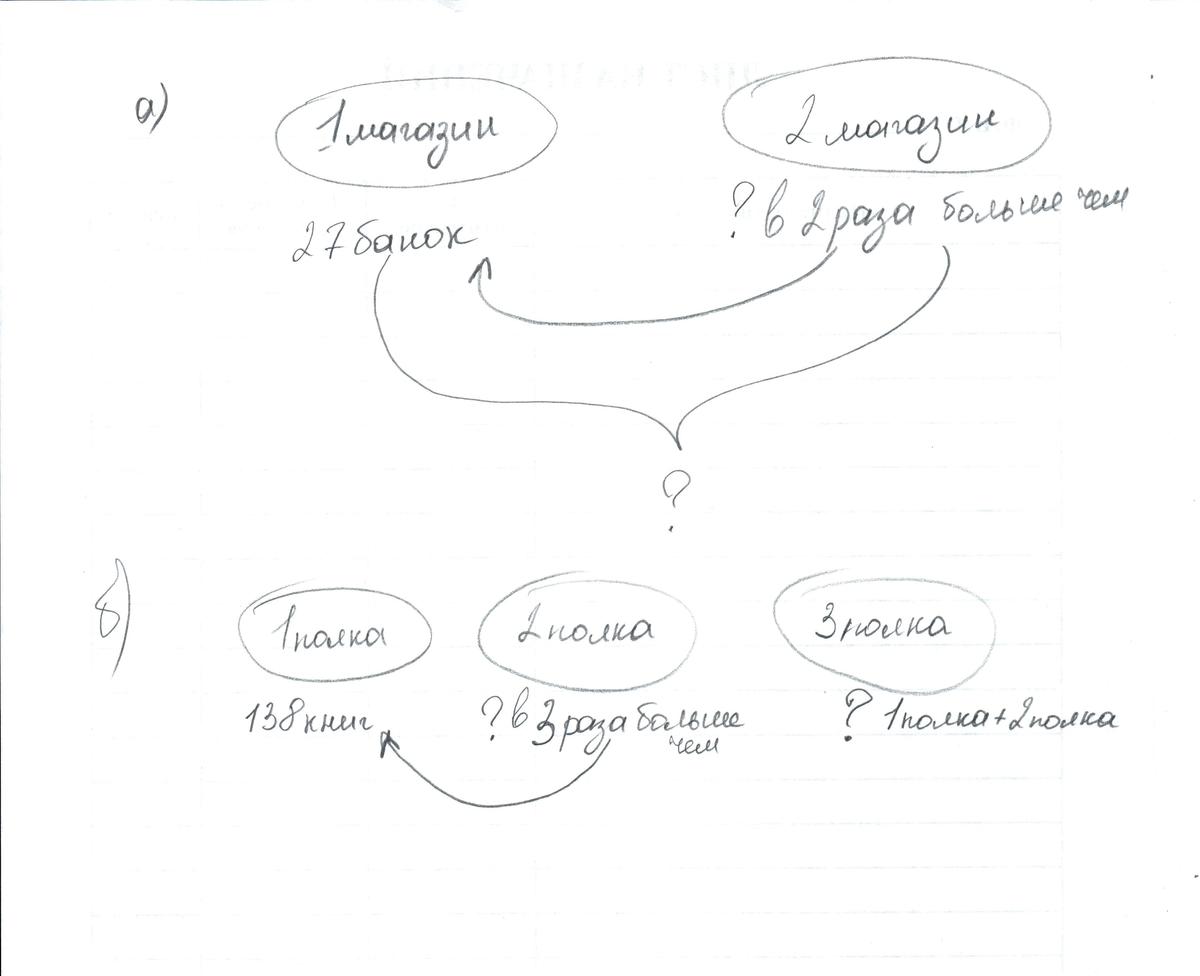 а)
1 магазин 2 магазин
27 банок ? в 2 раза больше чем
?
б)
1 полка 2 полка 3 полка
138 книг ? в 3 раза больше ? 1 полка + 2 полка
чем